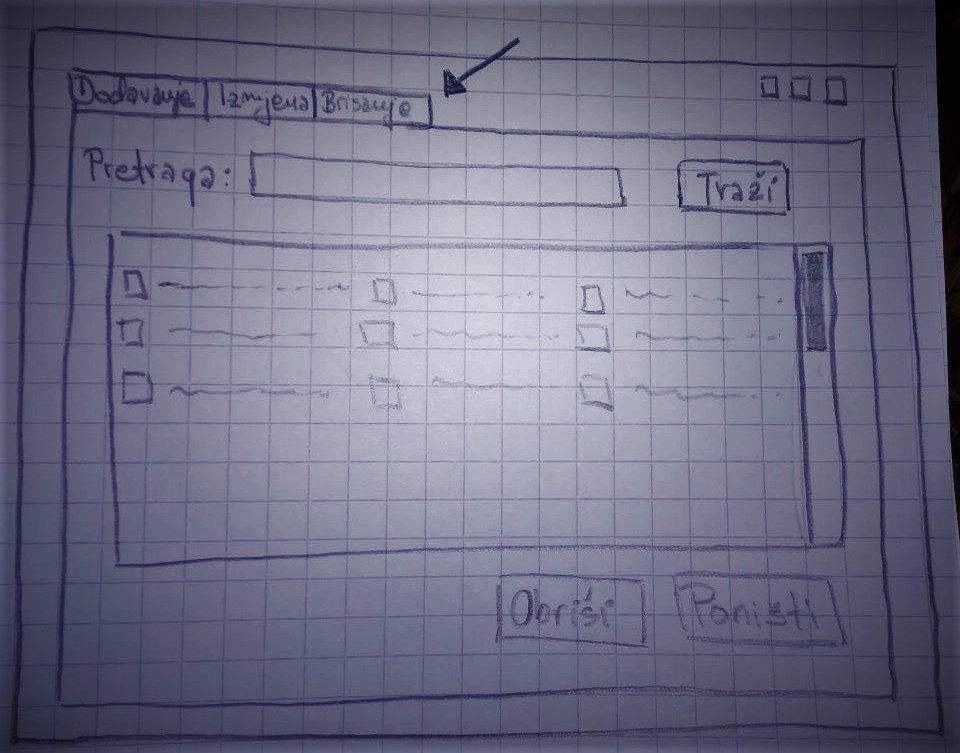 Dodavanje Izmjena Brisanje
Pretraga: Traži
Obriši Poništi